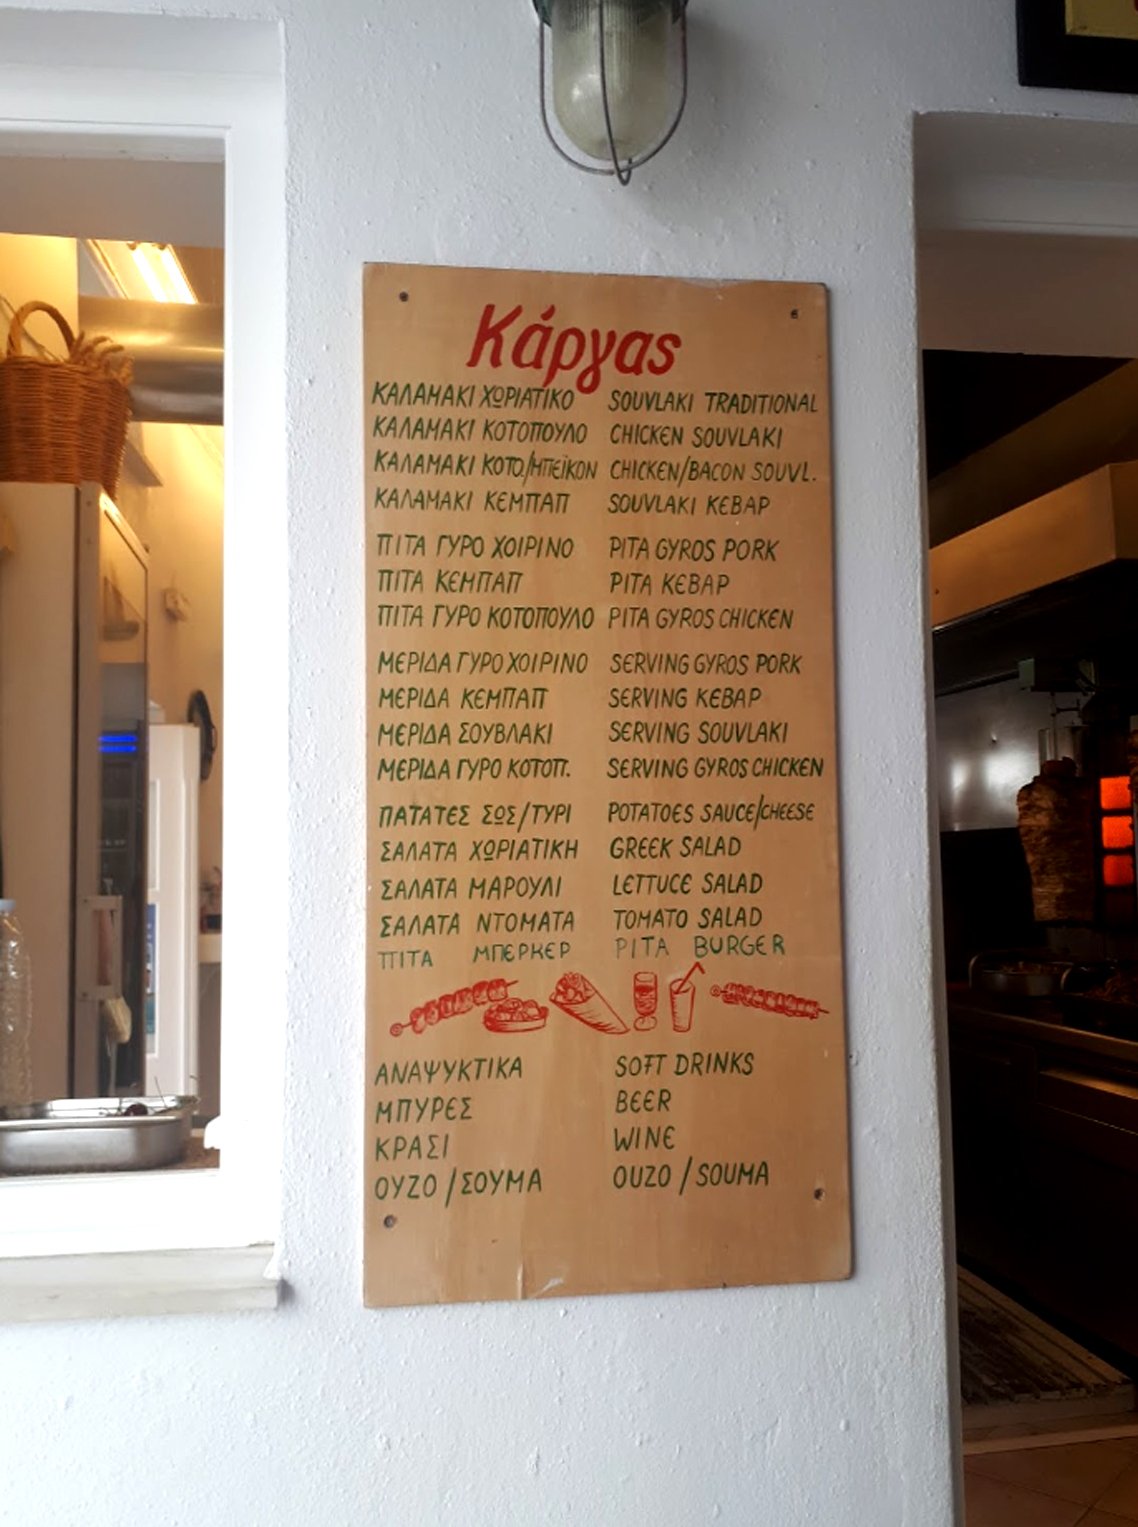 Κάργας
ΚΑΛΑΜΑΚΙ ΧΩΡΙΑΤΙΚΟ SOUVLAKI TRADITIONAL
ΚΑΛΑΜΑΚΙ ΚΟΤΟΠΟΥΛΟ CHICKEN SOUVLAKI
ΚΑΛΑΜΑΚΙ ΚΟΤΟ/ΜΠΕΪΚΟΝ CHICKEN/BACON SOUVL.
ΚΑΛΑΜΑΚΙ ΚΕΜΠΑΠ SOUVLAKI KEBAP
ΠΙΤΑ ΓΥΡΟ ΧΟΙΡΙΝΟ PITA GYROS PORK
ΠΙΤΑ ΚΕΜΠΑΠ PITA KEBAP
ΠΙΤΑ ΓΥΡΟ ΚΟΤΟΠΟΥΛΟ PITA GYROS CHICKEN
ΜΕΡΙΔΑ ΓΥΡΟ ΧΟΙΡΙΝΟ SERVING GYROS PORK
ΜΕΡΙΔΑ ΚΕΜΠΑΠ SERVING KEBAP
ΜΕΡΙΔΑ ΣΟΥΒΛΑΚΙ SERVING SOUVLAKI
ΜΕΡΙΔΑ ΓΥΡΟ ΚΟΤΟΠ. SERVING GYROS CHICKEN
ΠΑΤΑΤΕΣ ΣΩΣ/ΤΥΡΙ POTATOES SAUCE/CHEESE
ΣΑΛΑΤΑ ΧΩΡΙΑΤΙΚΗ GREEK SALAD
ΣΑΛΑΤΑ ΜΑΡΟΥΛΙ LETTUCE SALAD
ΣΑΛΑΤΑ ΝΤΟΜΑΤΑ TOMATO SALAD
ΠΙΤΑ ΜΠΕΡΚΕΡ PITA BURGER
ΑΝΑΨΥΚΤΙΚΑ SOFT DRINKS
ΜΠΥΡΕΣ BEER
ΚΡΑΣΙ WINE
ΟΥΖΟ/ΣΟΥΜΑ OUZO/SOUMA